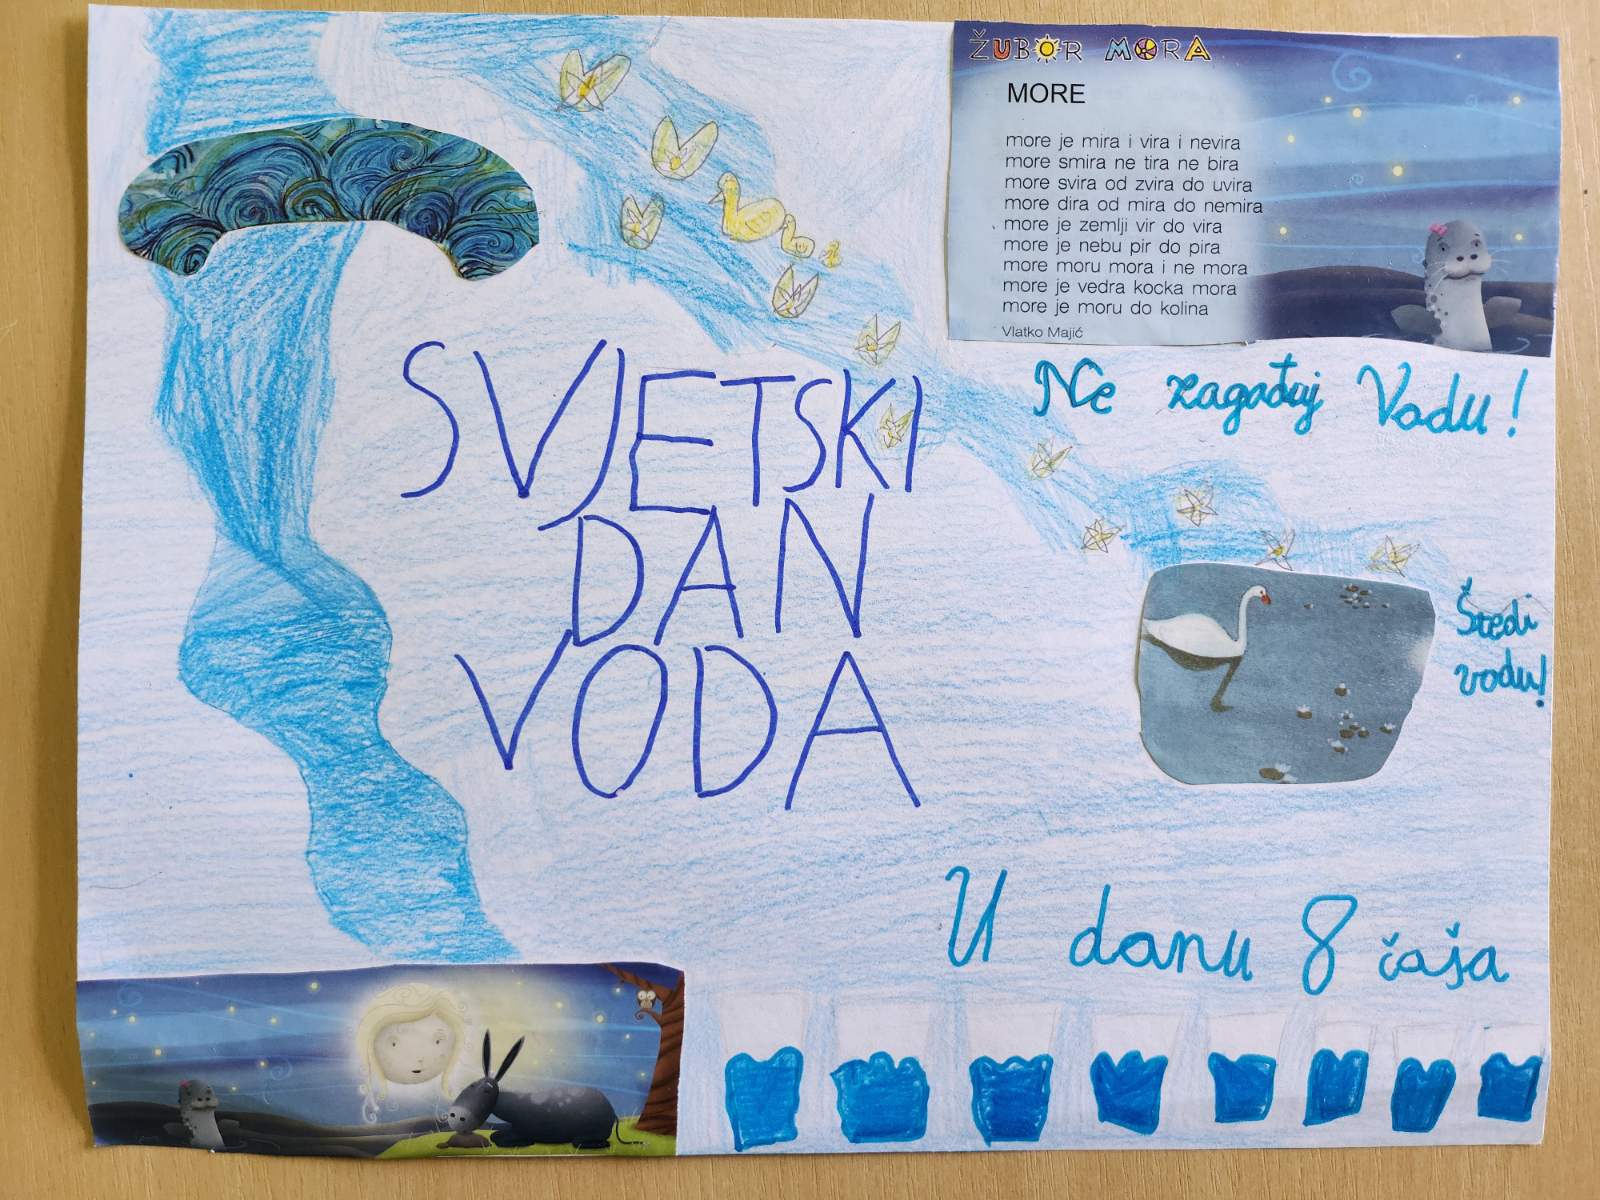 ŽUBOR MORA
MORE
more je mira i vira i nevira
more smira ne tira ne bira
more svira od zvira do uvira
more dira od mira do nemira
more je zemlji vir do vira
more je nebu pir do pira
more moru mora i ne mora
more je vedra kocka mora
more je moru do kolina
Vlatko Majić
Ne zagađuj Vodu!
SVJETSKI
DAN
VODA
Štedi
vodu!
U danu 8 čaša